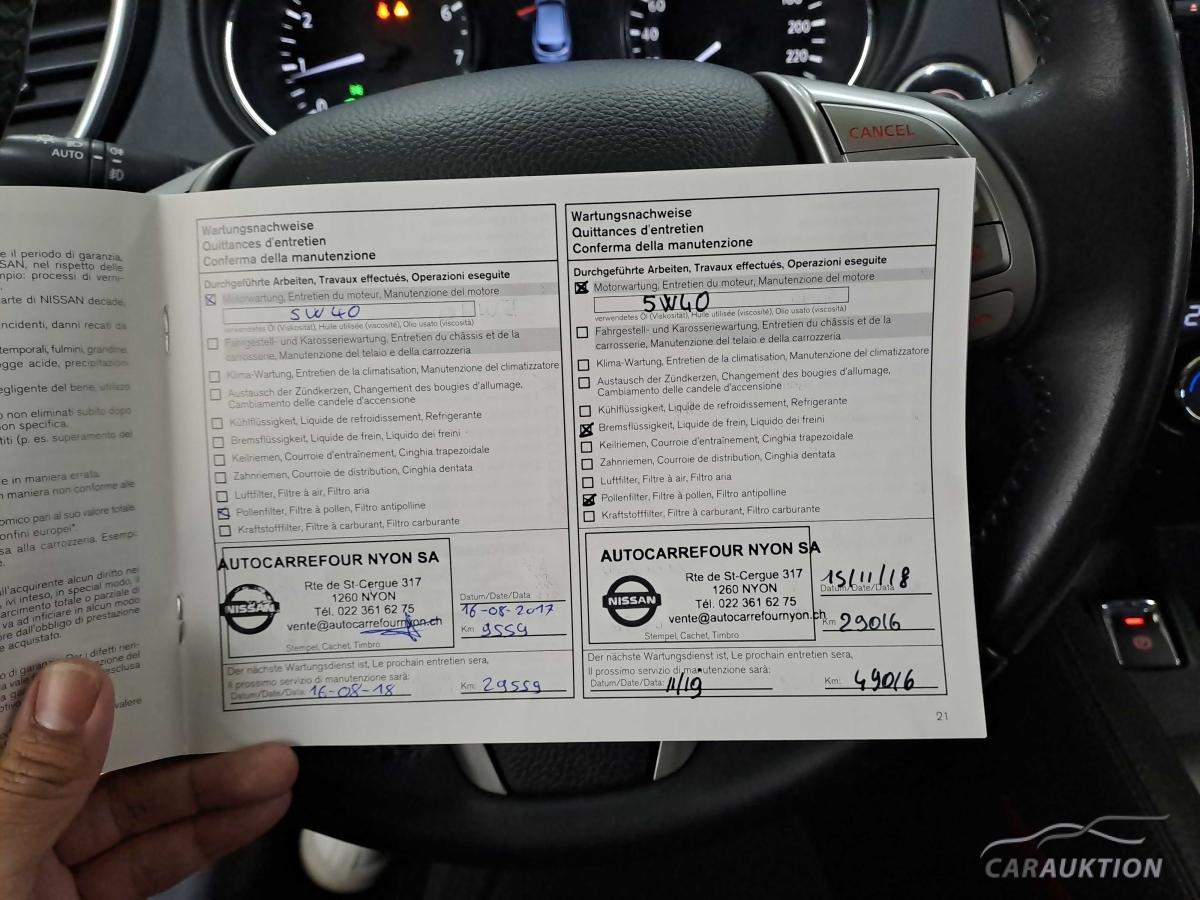 2
1
0
6
7
60
40
200
220
AUTO
CANCEL
e il periodo di garanzia,
SAN, nel rispetto delle
mpio: processi di verni-
arte di NISSAN decade,
incidenti, danni recati da
temporali, fulmini, grandine,
egge acide, precipitazioni
egligente del bene, utilizzo
o non eliminati subito dopo
non specifica.
titi (p. es. superamento del
e in maniera errata.
n maniera non conforme alle
omico pari al suo valore totale
onfini europei".
sa alla carrozzeria. Esempi:
e.
all'acquirente alcun diritto nei
, ivi inteso, in special modo, il
arcimento totale o parziale di
va ad inficiare in alcun modo
ore dall'obbligo di prestazione
e acquistato.
valore
Wartungsnachweise
Quittances d'entretien
Conferma della manutenzione
Durchgeführte Arbeiten, Travaux effectués, Operazioni eseguite
Motorwartung, Entretien du moteur, Manutenzione del motore
5W40
verwendetes Öl (Viskosität), Huile utilisée (viscosité), Olio usato (viscosità)
Fahrgestell- und Karosseriewartung, Entretien du châssis et de la
carrosserie, Manutenzione del telaio e della carrozzeria
Klima-Wartung, Entretien de la climatisation, Manutenzione del climatizzatore
Austausch der Zündkerzen, Changement des bougies d'allumage,
Cambiamento delle candele d'accensione
Kühlflüssigkeit, Liquide de refroidissement, Refrigerante
Bremsflüssigkeit, Liquide de frein, Liquido dei freini
Keilriemen, Courroie d'entraînement, Cinghia trapezoidale
Zahnriemen, Courroie de distribution, Cinghia dentata
Luftfilter, Filtre à air, Filtro aria
Pollenfilter, Filtre à pollen, Filtro antipolline
Kraftstofffilter, Filtre à carburant, Filtro carburante
AUTOCARREFOUR NYON SA
NISSAN
Rte de St-Cergue 317
1260 NYON
Tél. 022 361 62 75
vente@autocarrefournyon.ch
Stempel, Cachet, Timbro
Datum/Date/Data
16-08-2017
Km 9559
Der nächste Wartungsdienst ist, Le prochain entretien sera,
Il prossimo servizio di manutenzione sarà:
Datum/Date/Data: 16-08-18 Km: 29559
Wartungsnachweise
Quittances d'entretien
Conferma della manutenzione
Durchgeführte Arbeiten, Travaux effectués, Operazioni eseguite
Motorwartung, Entretien du moteur, Manutenzione del motore
5W40
verwendetes Öl (Viskosität), Huile utilisée (viscosité), Olio usato (viscosità)
Fahrgestell- und Karosseriewartung, Entretien du châssis et de la
carrosserie, Manutenzione del telaio e della carrozzeria
Klima-Wartung, Entretien de la climatisation, Manutenzione del climatizzatore
Austausch der Zündkerzen, Changement des bougies d'allumage,
Cambiamento delle candele d'accensione
Kühlflüssigkeit, Liquide de refroidissement, Refrigerante
Bremsflüssigkeit, Liquide de frein, Liquido dei freini
Keilriemen, Courroie d'entraînement, Cinghia trapezoidale
Zahnriemen, Courroie de distribution, Cinghia dentata
Luftfilter, Filtre à air, Filtro aria
Pollenfilter, Filtre à pollen, Filtro antipolline
Kraftstofffilter, Filtre à carburant, Filtro carburante
AUTOCARREFOUR NYON SA
NISSAN
Rte de St-Cergue 317
1260 NYON
Tél. 022 361 62 75
vente@autocarrefournyon.ch
Stempel, Cachet, Timbro
15/11/18
Datum/Date/Data
Km 29016
Der nächste Wartungsdienst ist, Le prochain entretien sera,
Il prossimo servizio di manutenzione sarà:
Datum/Date/Data: 11/19 Km: 49016
21
CARAUKTION